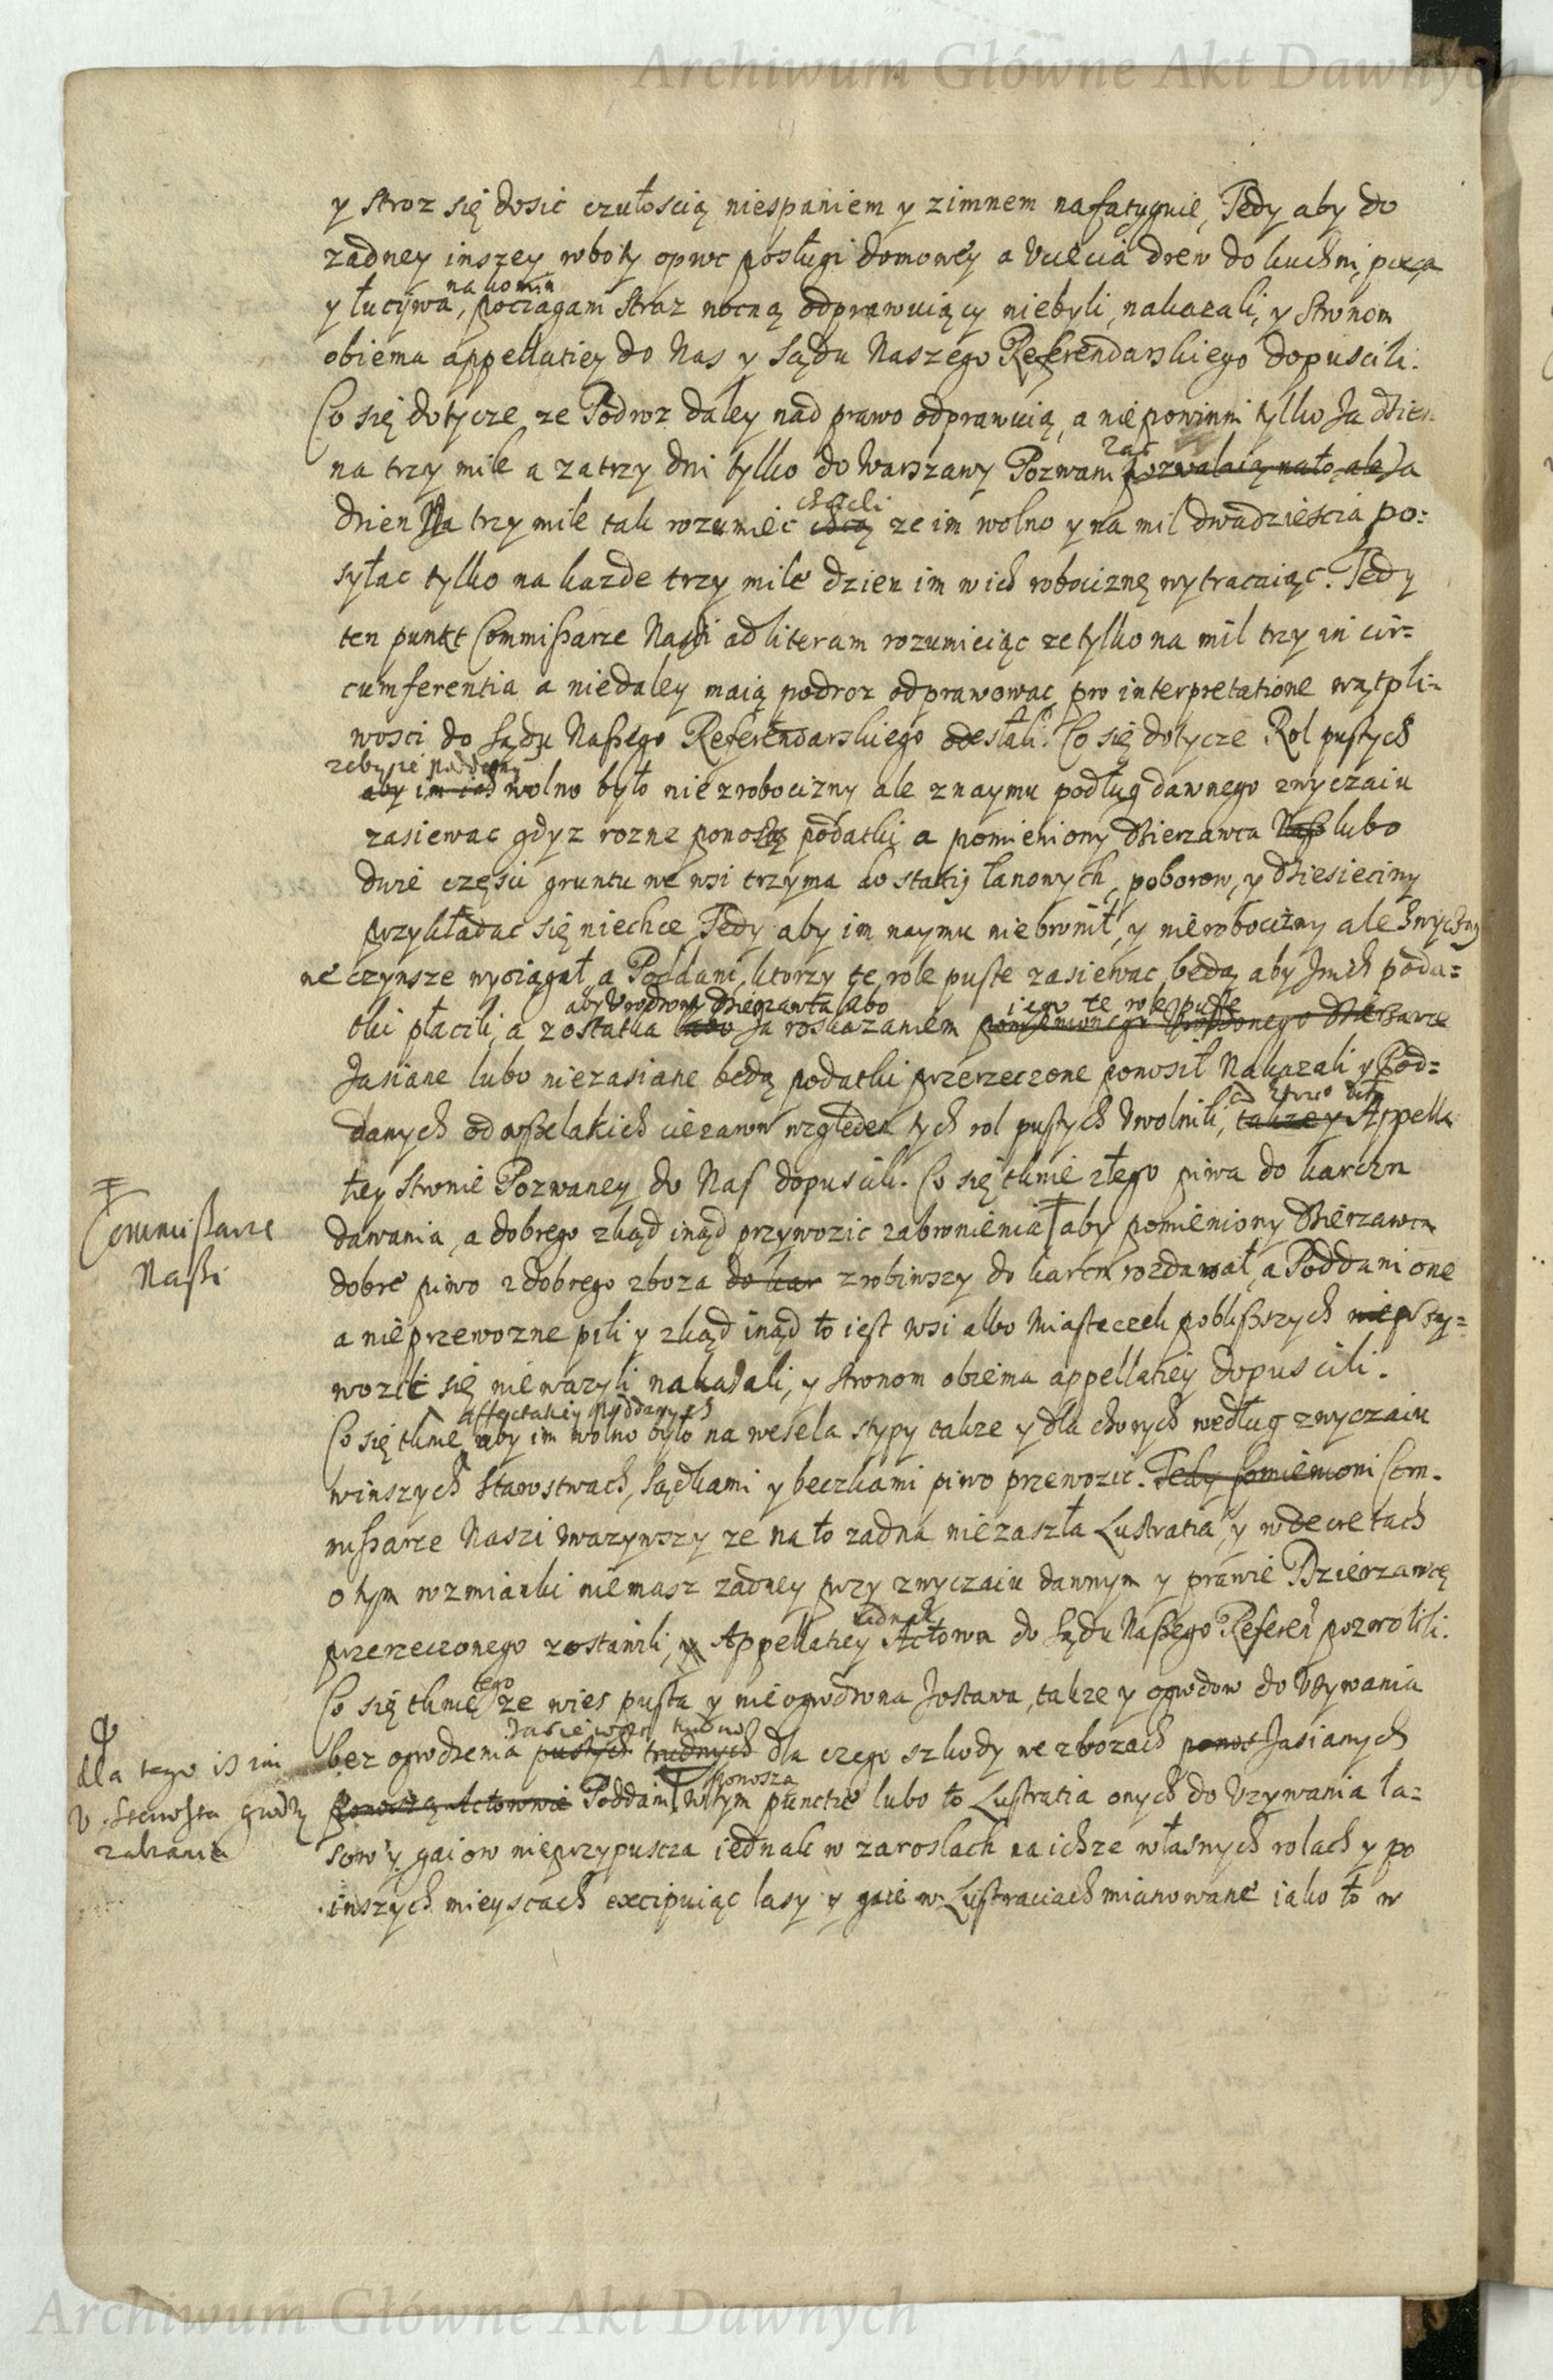 Archiwum Główne Akt Dawnych
y stroz się dosic czułoscią niespaniem y zimnem nafatyguie, Tedy aby do
zadney inszey roboty oprocz posługi domowey a Uciecia drew do kuchni, pieca
na komin
y łuczywa, pociągani straz nocną odprawuiący niebyli, nakazali, y stronom
obiema appellatiey do Nas y Sądu Naszego Referendarskiego dopuscili.
Co się dotycze ze Podroz daley nad prawo odprawuią, a niepowinni tylko Za dzien
zas
na trzy mile a za trzy dni tylko do Warszawy Pozwani pozwalaią na to ale Za
chcieli
dzien Na trzy mile tak rozumiec chcą ze im wolno y na mil dwadziescia po=
syłac tylko na kazde trzy mile dzien im w ich robociznę wytrącaiąc. Tedy
ten punkt Commißarze Naszi ad literam rozumieiąc ze tylko na mil trzy in cir=
cumferentia a niedaley maią podroz odprawowac, pro interpretatione wątpli=
wosci do Sądu Naßego Referendarskiego odesłali. Co się dotycze Rol pustych
zeby ie Poddany
aby im ich wolno było nie z robocizny ale z naymu podług dawnego zwyczaiu
zasiewac gdyz rozne ponoszą podatki a pomieniony dzierzawca Naß lubo
dwie częsci gruntu we wsi trzyma do stacij łanowych, poborow, y dziesieciny
przykładac się niechce, Tedy aby im naymu niebronił, y nierobocizny ale zwyczay
ne czynsze wyciągał, a Poddani, ktorzy te role puste zasiewac będą aby z nich poda=
aby Urodzony dzierzawca labo iego te role puste
tki płacili, a z ostatka labo Za roskazaniem pomienionego Urodzonego Dzierzawce
Zasiane lubo niezasiane będą podatki przerzeczone ponosił Nakazali y Pod=
danych od wßelakich ciezarow względem tych rol pustych Uwolnili, takze y Appella
tiey stronie Pozwaney do Nas dopuscili. Co się tknie złego piwa do karczm
dawania, a dobrego zkąd inąd przywozic zabronienia aby pomieniony Dzierzawca
Commißarze
Naßi
dobre piwo z dobrego zboza do kar zrobiwszy do karczm rozdawał, a Poddani one
a nieprzewozne pili y zkąd inąd to iest wsi albo Miasteczek poblißszych nie przy=
wozic się niewazyli nakazali, y stronom obiema appellatiey dopuscili.
affectatiey Poddanych
Co się tknie aby im wolno było na wesela stypy takze y dla chorych według zwyczaiu
winszych Starostwach, Sądkami y beczkami piwo przewozic. Tedy Pomienioni Com=
mißarze Naszi uwazywszy ze na to zadna niezaszła Lustratia y w decretach
o tym wzmianki niemasz zadney przy zwyczaiu dawnym y prawie Dzierzawcę
iednak
przerzeczonego zostawili, y Appellatiey Actorom do Sądu Naßego Referen pozwolili.
tego
Co się tknie ze wies pusta y nieogrodzona Zostawa, takze y ogrodow do Uzywania
bez ogrodzenia pustych trudnych dla czego szkody we zbozach ponos Zasianych
dla tego is im
U. Starosta grodzy
zakazuie
ponoszą
ponoszą Actorowie Poddani w tym punctie lubo to Lustratia onych do Uzywania la=
sow y gaiow nieprzypuscza iednak w zaroslach na ichze własnych rolach y po
inszych mieyscach excipuiąc lasy y gaie w Lustraciach mianowane iako to w
Archiwum Główne Akt Dawnych